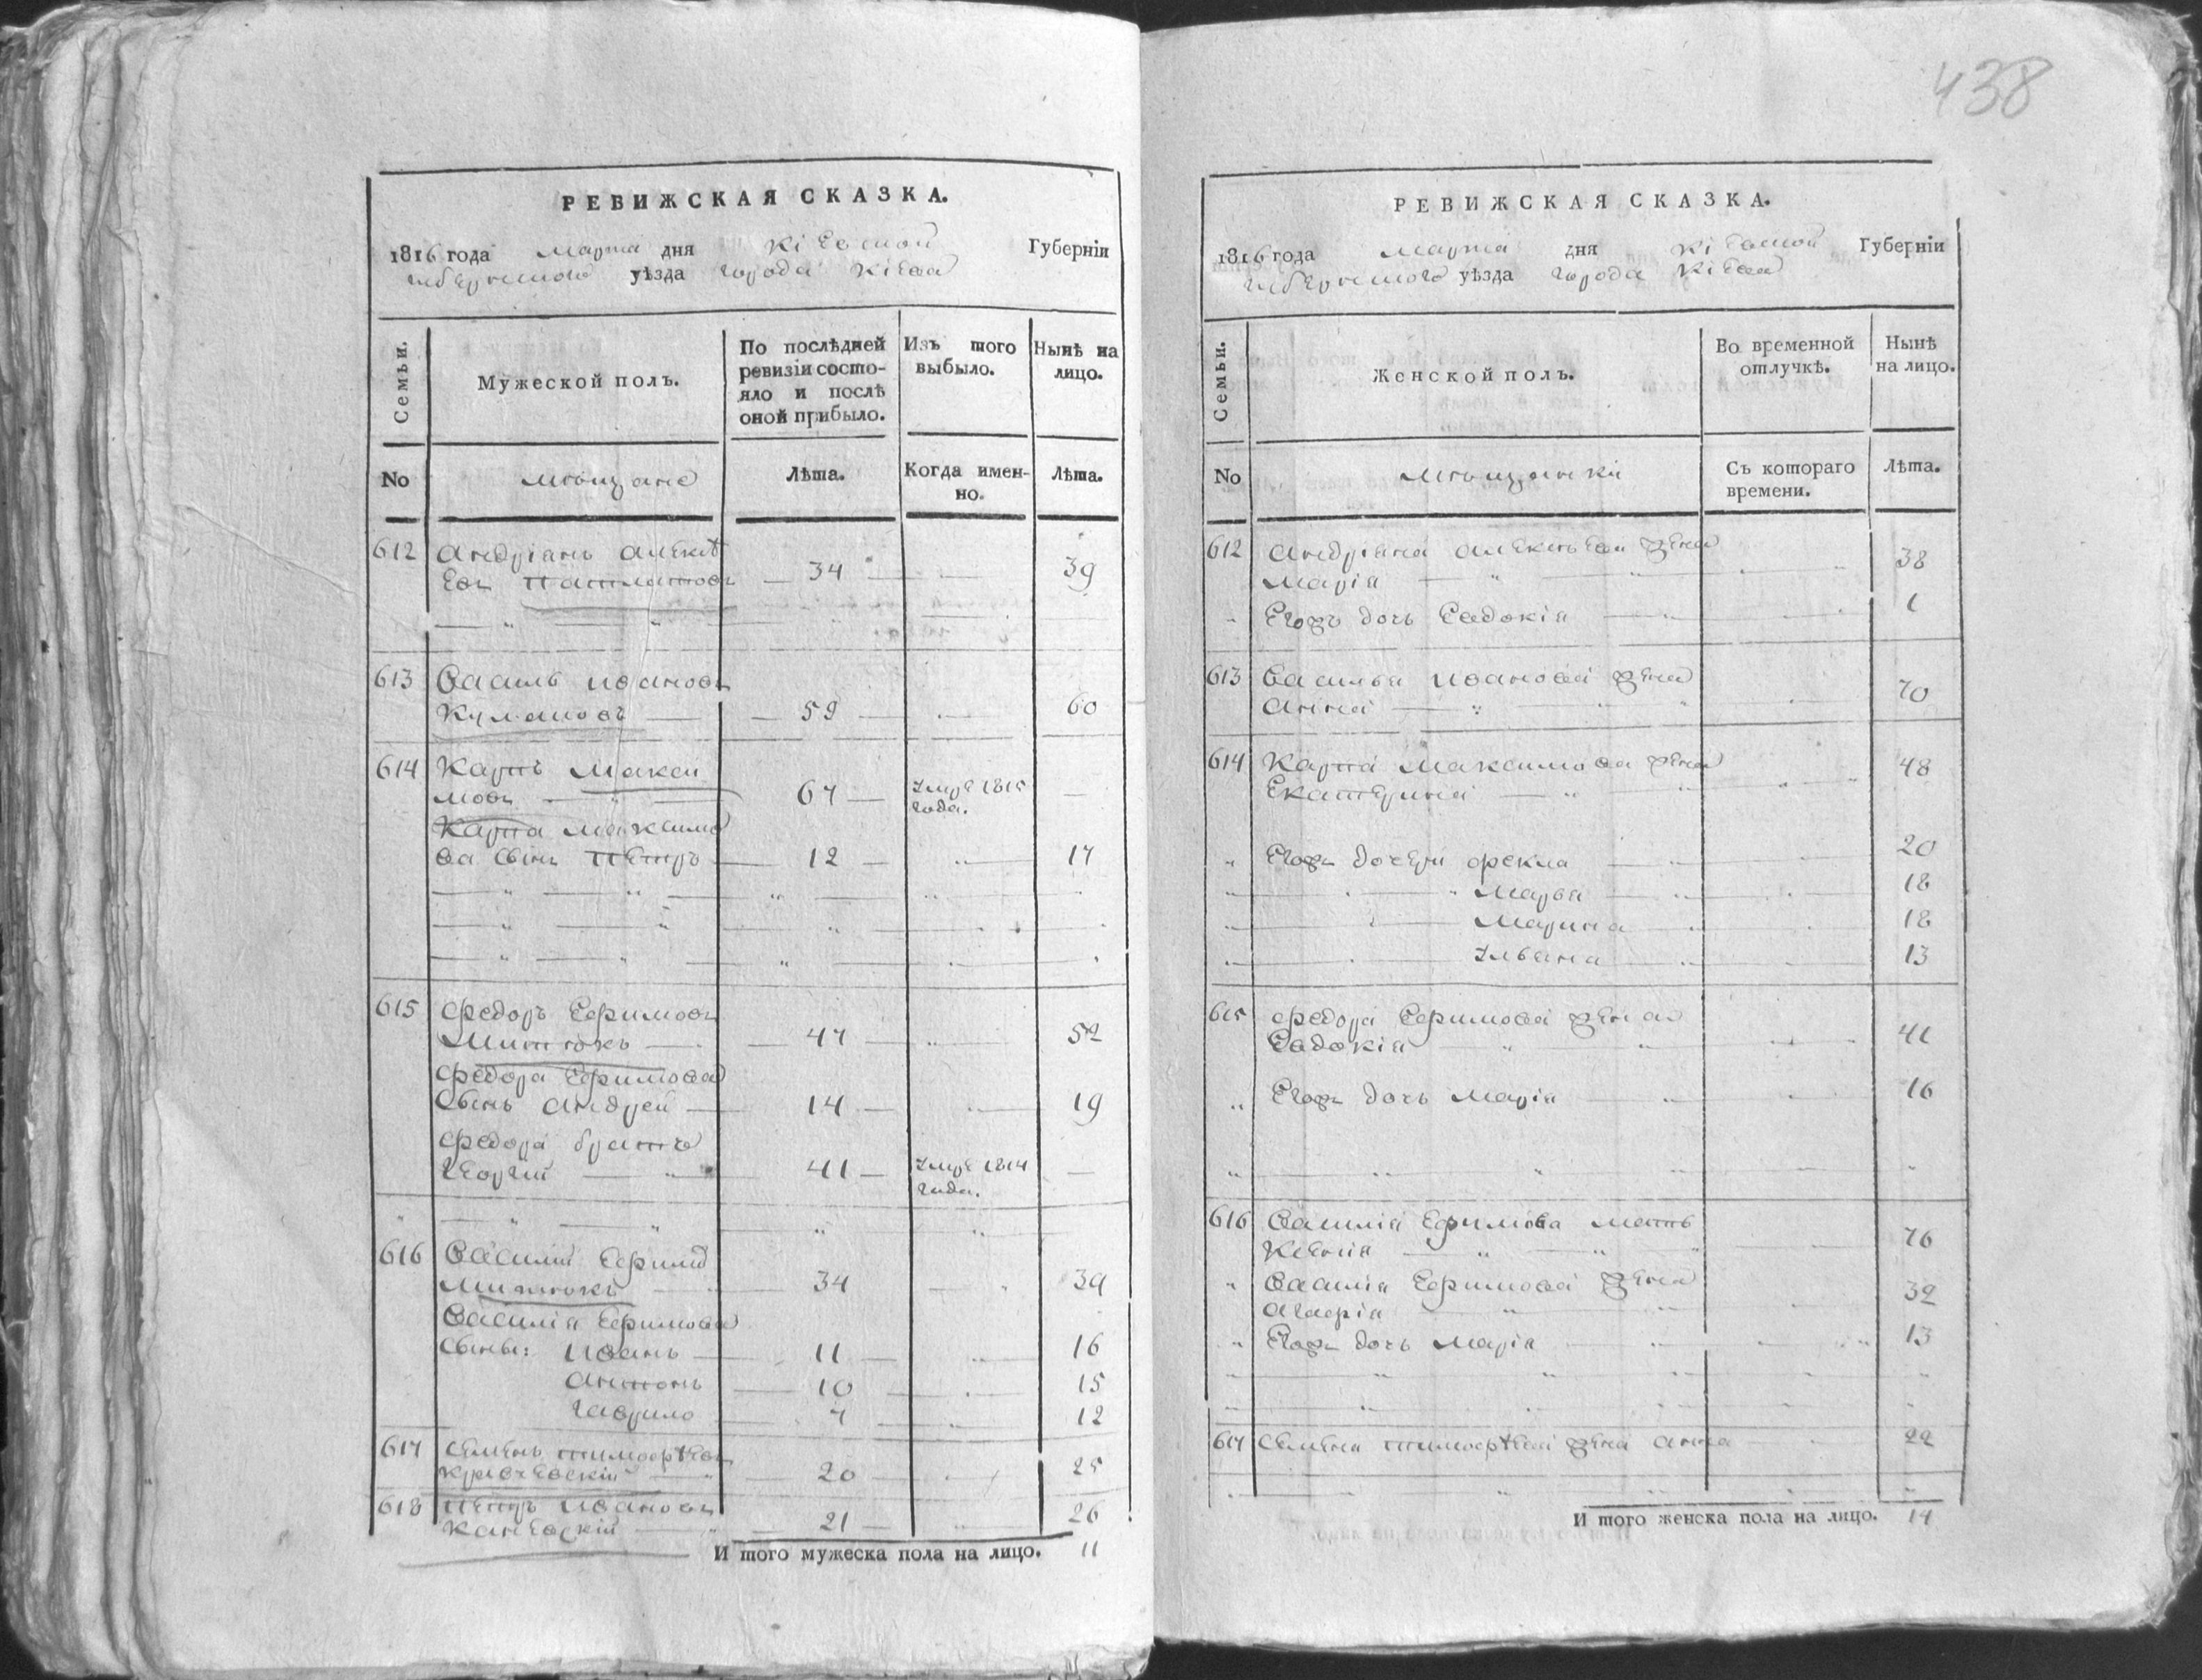 438
РЕВИЖСКАЯ СКАЗКА.
1816 года марта дня Кіевской Губерніи
уѣзда города Кіева
Семьи.
Мужеской полъ.
По послѣдней
ревизіи состо-
яло и послѣ
оной прибыло.
Изъ того
выбыло.
Нынѣ на
лицо.
No
мѣщане
Лѣта.
Когда имен-
но.
Лѣта.
612 Андріянъ Алексѣ
евъ 34 39
613 Василь Ивановъ
59 60
614 Карпъ Макси
мовъ 67 Умре 1815
года.
Карпа Максимо
ва сынъ Петръ 12 17
615 Федоръ Ефимовъ
Митюкъ 47 52
Федора Ефимова
сынъ Андрей 14 19
Федора братъ
Георгій 41 Умре 1814
года.
616 Василій Ефимо
Митюкъ 34 39
Василія Ефимова
сыны: Иванъ 11 16
Антонъ 10 15
Гаврило 7 12
617 Семенъ Тимофѣевъ
20 25
618 Петръ Ивановъ
Каневскій 21 26
И того мужеска пола на лицо. 11
РЕВИЖСКАЯ СКАЗКА.
1816 года марта дня Кіевской Губерніи
уѣзда города Кіева
Семьи.
Женской полъ.
Во временной
отлучкѣ.
Нынѣ
на лицо.
No
мѣщанки
Съ котораго
времени.
Лѣта.
612 Андріяна Алексѣева жена
Марія 38
Егожъ дочь Евдокія 1
613 Василья Иванова жена
Анна 70
614 Карпа Максимова жена
Екатерина 48
Егожъ дочери Фекла 20
Марья 18
Марина 18
Ульяна 13
615 Федора Ефимова жена
Евдокія 41
Егожъ дочь Марія 16
616 Василія Ефимова мать
Ксенія 76
Василія Ефимова жена
Агафія 32
Егожъ дочь Марія 13
617 Семена Тимофѣева жена Анна 22
И того женска пола на лицо. 14